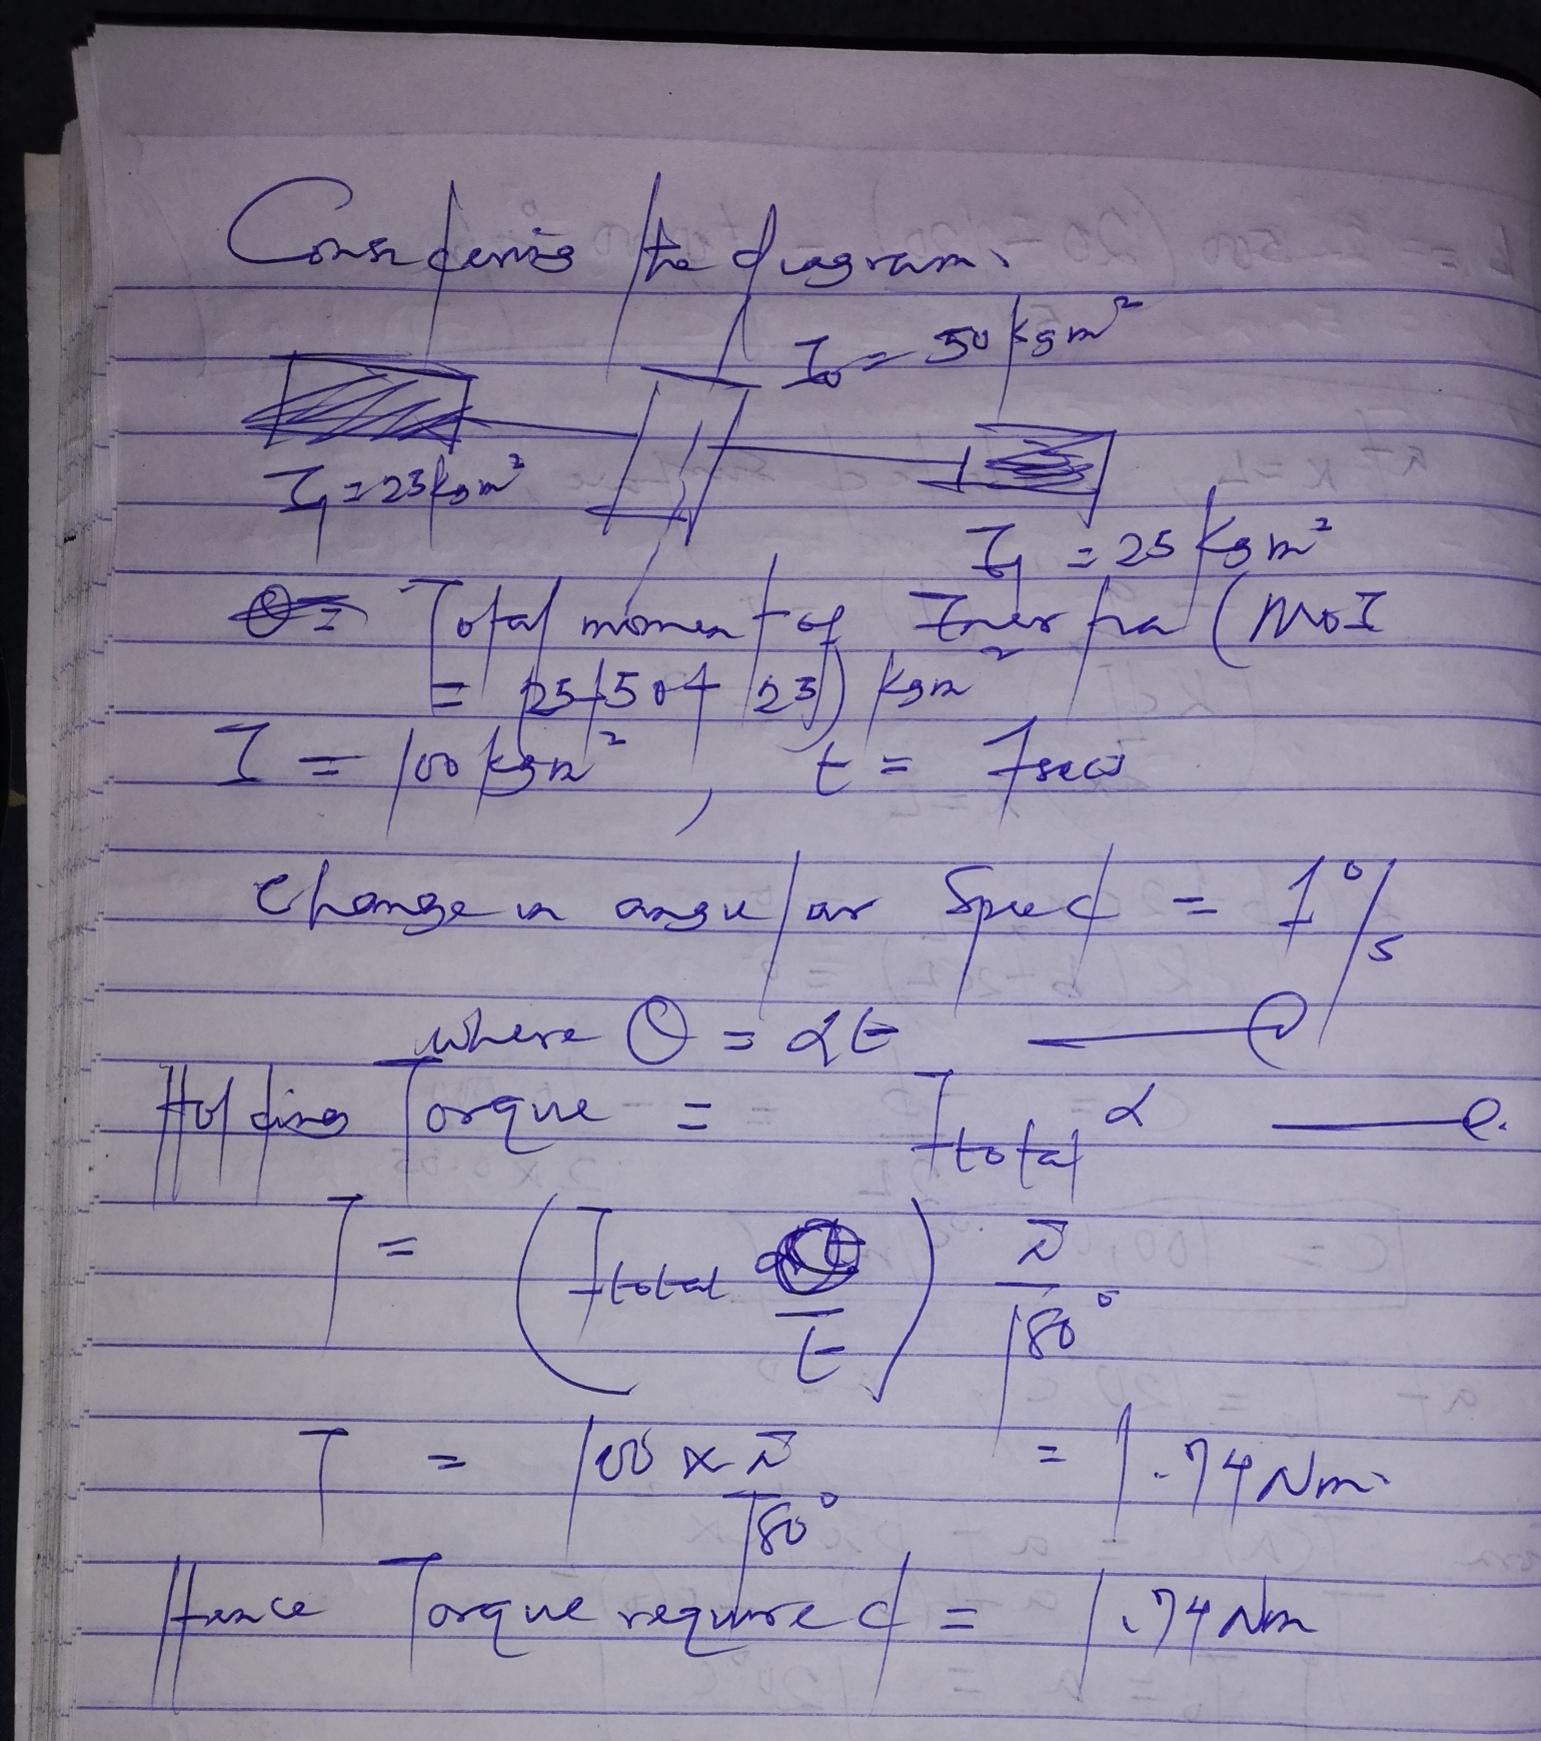 Considering the diagram.
I₀ = 50 kgm²
I₁ = 25 kgm²
I₁ = 25 kgm²
Total moment of Inertia (MoI
= 25+50+25) kgm²
I = 100 kgm², t = 1 secs
Change in angular Speed = 1°/s
where θ = αt
Holding Torque = I total α
T = (I total θ/t) π/180°
T = 100 × π/180° = 1.74 Nm.
Hence Torque required = 1.74 Nm